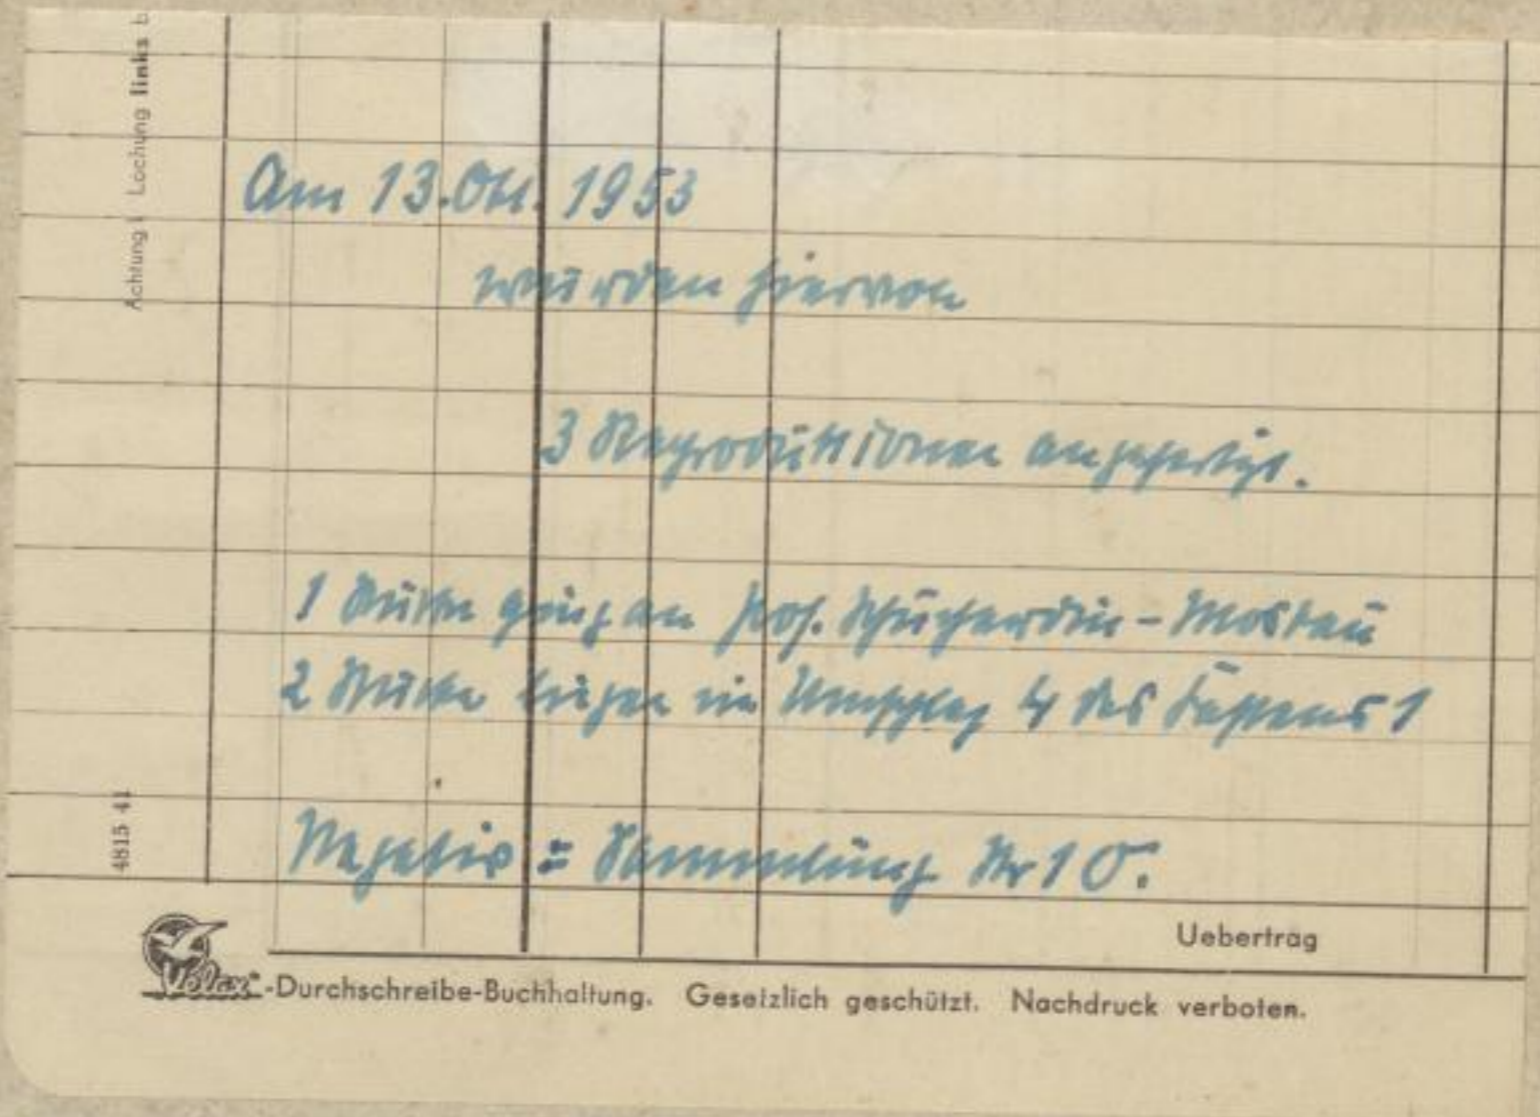 Achtung! Lochung links b
Am 13. Okt. 1953
wurden hiervon
3 Reproduktionen angefertigt.
1 Stück ging an Prof. Schuchardin - Moskau
2 Stücke liegen im Umschlag 4 des Kastens 1
Negativ = Sammlung Nr 10.
4815 41
Uebertrag
Velox-Durchschreibe-Buchhaltung. Gesetzlich geschützt. Nachdruck verboten.